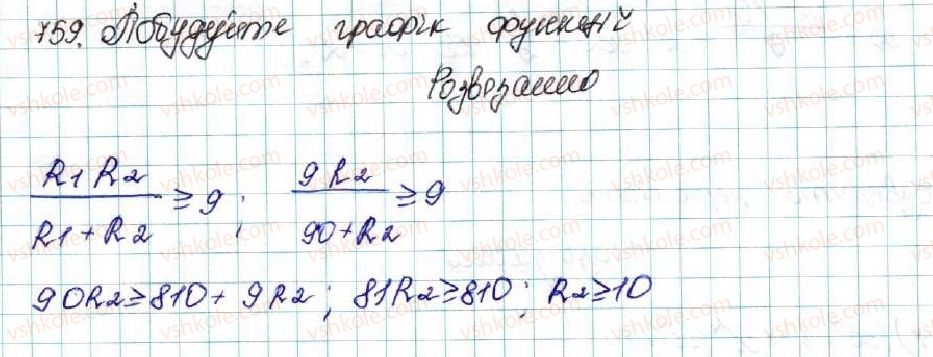 759. Побудуйте графік функцій
Розвязанно
R1 R2 / R1 + R2 ≥ 9 ; 9 R2 / 90 + R2 ≥ 9
90R2 ≥ 810 + 9R2 ; 81R2 ≥ 810 ; R2 ≥ 10
vshkole.com